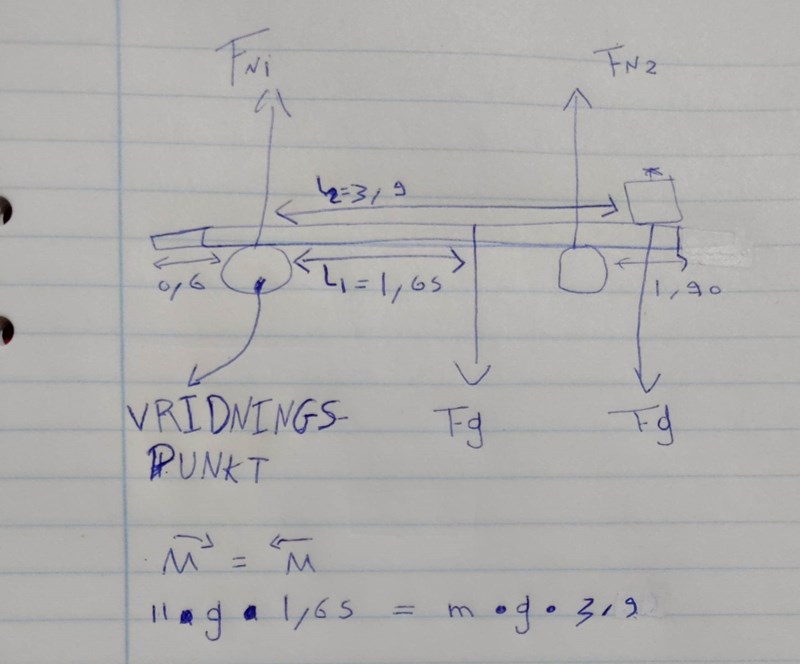 FN1 FN2
*
L2=3,9
0,6 L1=1,65 1,90
VRIDNINGS-
PUNKT
Fg Fg
M = M
11•g•1,65 = m•g•3,9